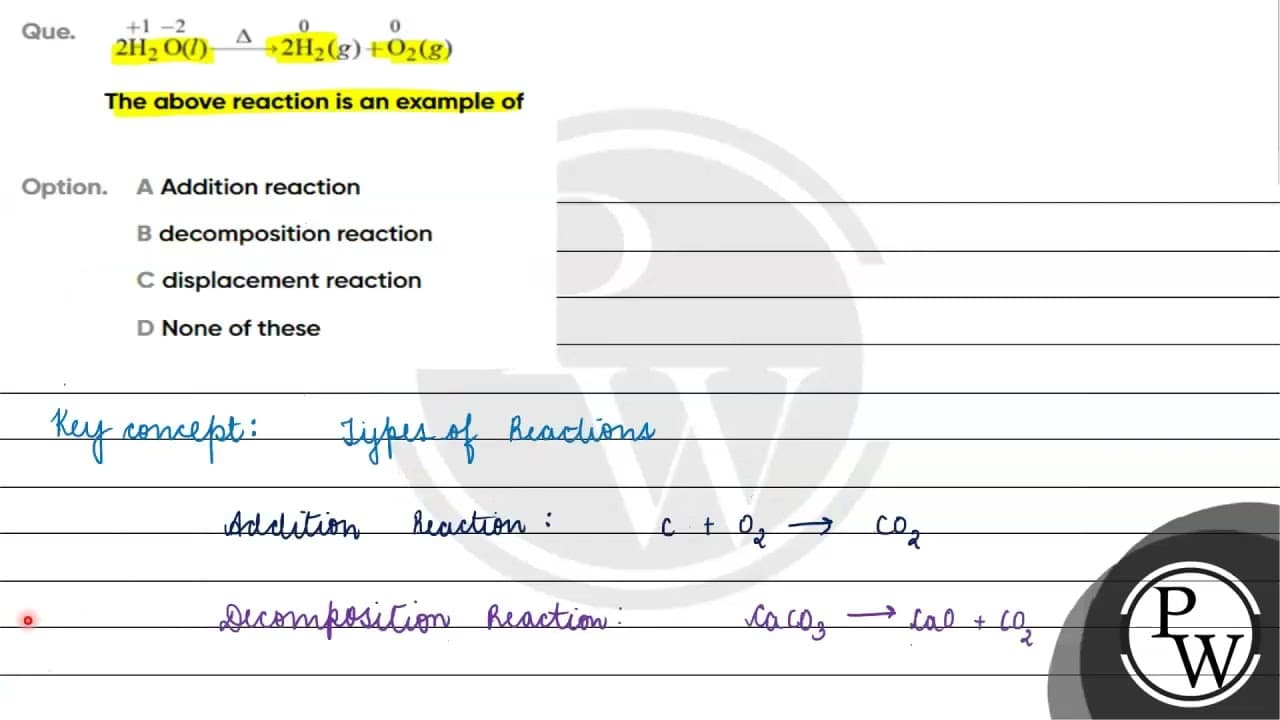 +1 −2 0 0
Que. 2H₂ O(l) —Δ→ 2H₂(g) + O₂(g)
The above reaction is an example of
Option. A Addition reaction
B decomposition reaction
C displacement reaction
D None of these
Key concept: Types of Reactions
Addition Reaction : C + O₂ → CO₂
Decomposition Reaction: CaCO₃ → CaO + CO₂
P
W
P
W